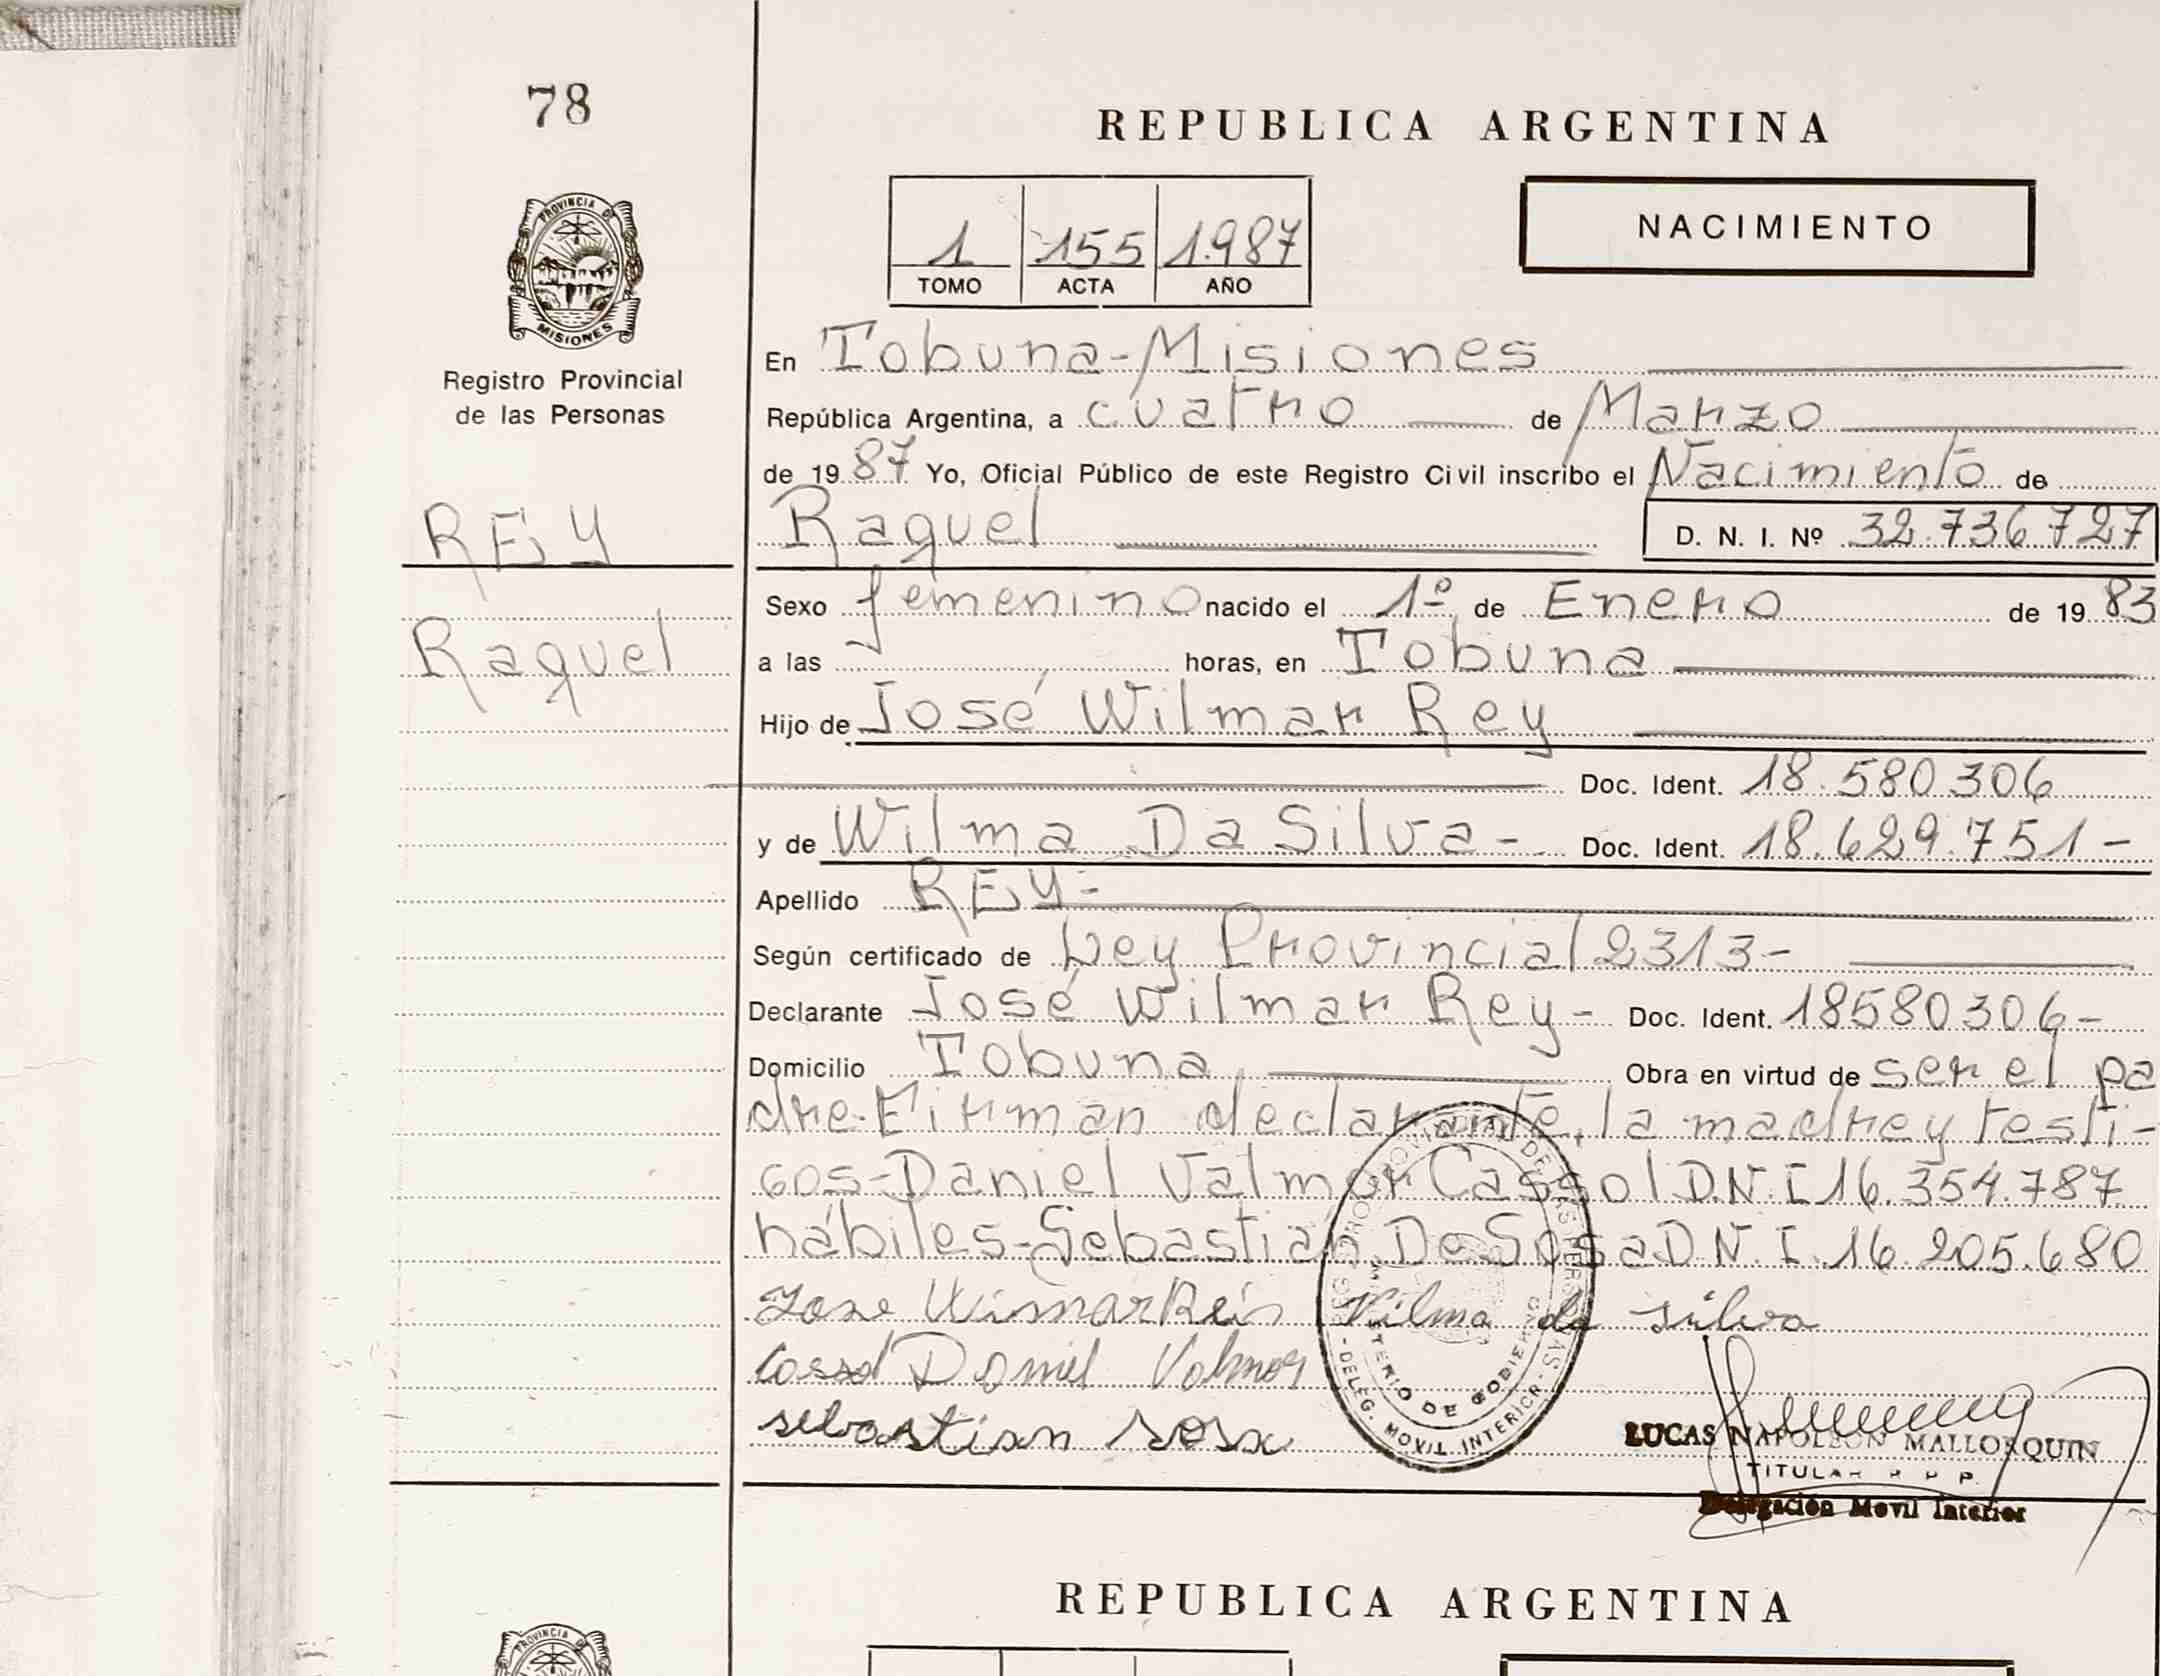 78
REPUBLICA ARGENTINA
1 155 1.987
TOMO ACTA AÑO
NACIMIENTO
PROVINCIA DE
MISIONES
Registro Provincial
de las Personas
REY
Raquel
En Tobuna-Misiones
República Argentina, a cuatro de Marzo
de 1987 Yo, Oficial Público de este Registro Civil inscribo el Nacimiento de
Raquel D. N. I. Nº 32.736.727
Sexo femenino nacido el 1º de Enero de 1983
a las horas, en Tobuna
Hijo de José Wilmar Rey
Doc. Ident. 18.580.306
y de Wilma Da Silva- Doc. Ident. 18.629.751-
Apellido REY-
Según certificado de Ley Provincial 2313-
Declarante José Wilmar Rey- Doc. Ident. 18580306-
Domicilio Tobuna Obra en virtud de ser el pa
dre-Firman declarante, la madre y testi-
gos-Daniel Valmor Cassol D.N.I 16.354.787
hábiles-Sebastián De Sosa D.N.I. 16.205.680
Jose Wismar Reis Vilma da silva
Cassol Daniel Valmor
sebastian sosa
MINISTERIO DE GOBIERNO
DELEG. MOVIL INTERIOR
LUCAS NAPOLEON MALLORQUIN
TITULAR R P P
Delegación Movil Interior
REPUBLICA ARGENTINA
PROVINCIA DE